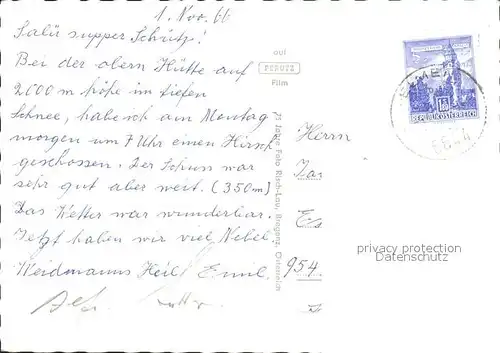 1. Nov. 66
Salü supper Schütz!
Bei der obern Hütte auf
2000 m höhe im tiefen
Schnee, habe ich am Montag
morgen um 7 Uhr einen Hirsch
geschossen. Der Schuss war
sehr gut aber weit. (350 m)
Das Wetter war wunderbar.
Jetzt haben wir viel Nebel.
Weidmanns Heil Emil.
auf
PERUTZ
Film
Foto Risch-Lau, Bregenz, Österreich
REPUBLIK ÖSTERREICH
Herrn
954
privacy protection
Datenschutz